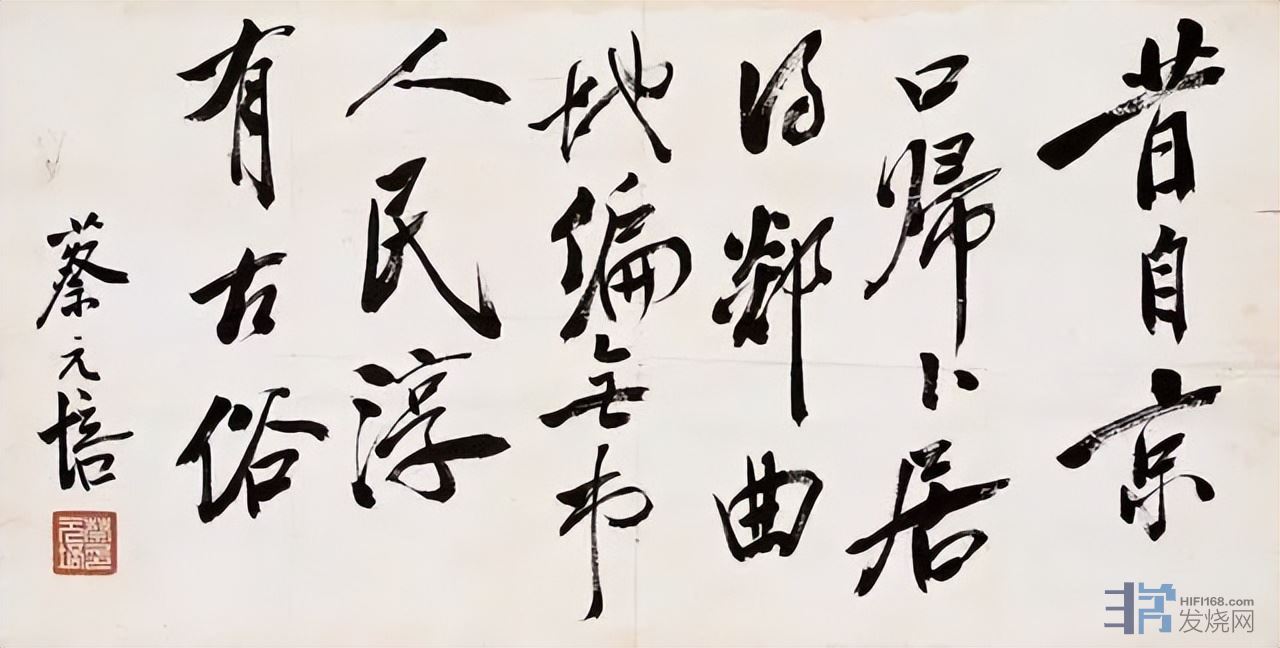 昔自京
口歸卜居
得鄰曲
地偏無市
人民淳
有古俗
蔡元培
HIFI168.com
发烧网